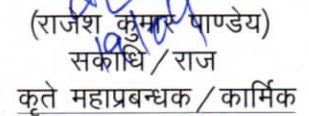 (राजेश कुमार पाण्डेय)
19/04
सकाधि / राज
कृते महाप्रबन्धक / कार्मिक